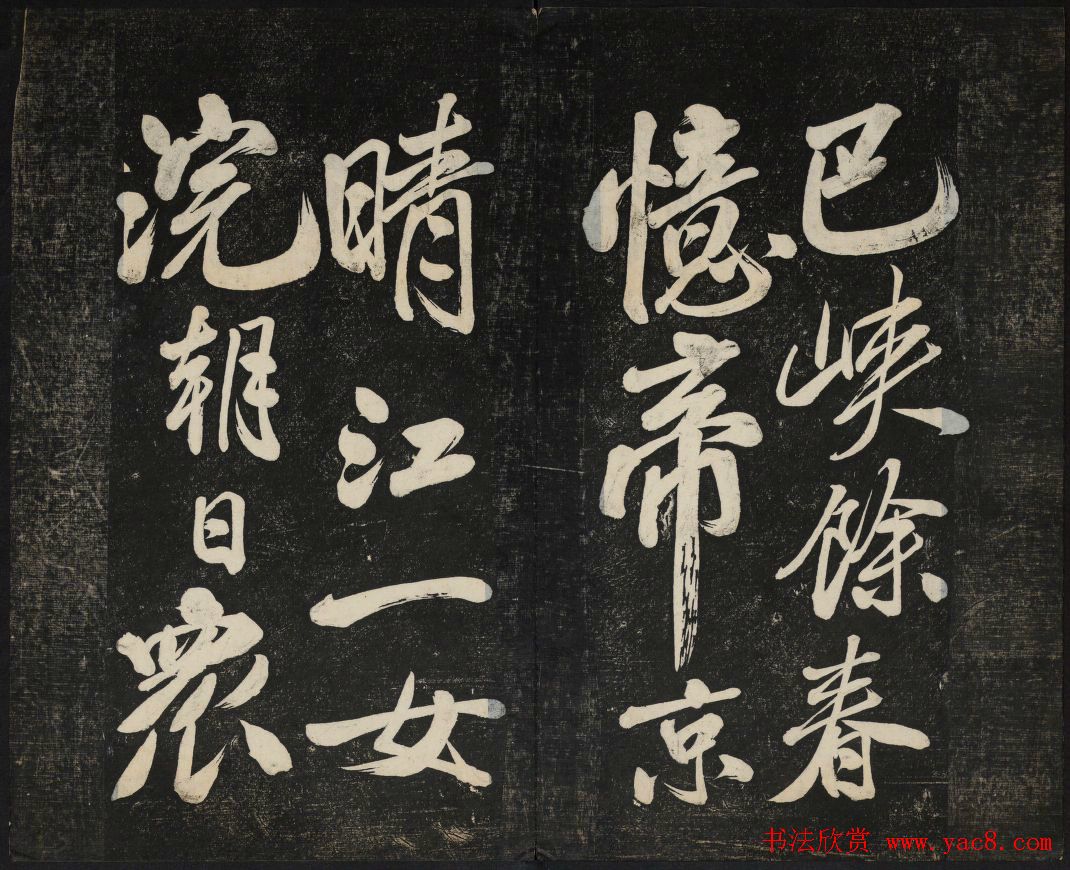 巴峽餘春
憶帝京
晴江一女
浣朝日衆
书法欣赏 www.yac8.com